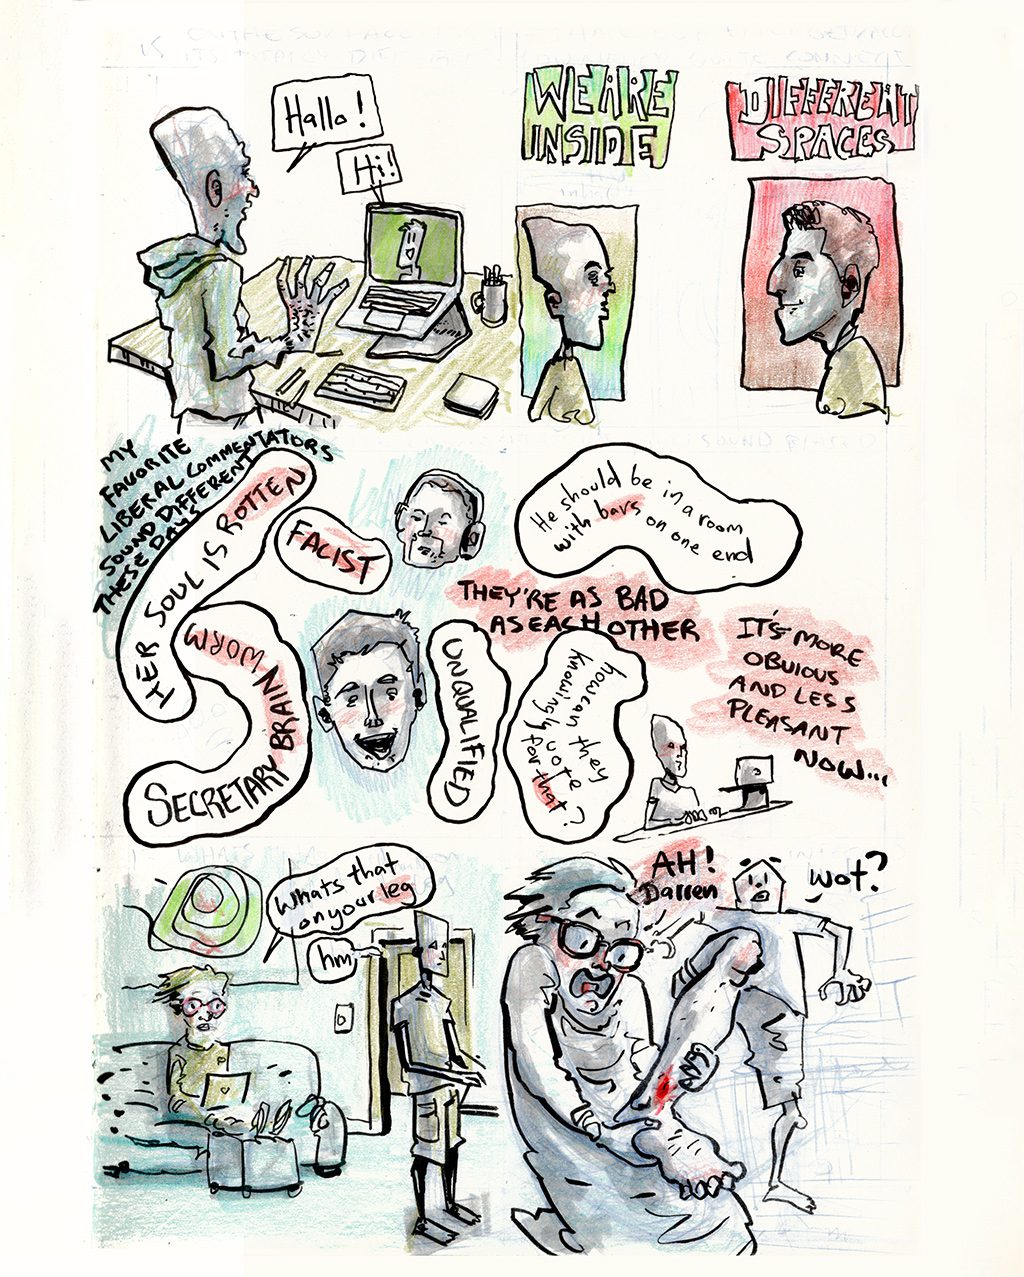 Hallo!
Hi!
WE ARE
INSIDE
DIFFERENT
SPACES
MY
FAVORITE
LIBERAL COMMENTATORS
SOUND DIFFERENT
THESE DAYS
HER SOUL IS ROTTEN
FACIST
He should be in a room
with bars on one end
THEY'RE AS BAD
AS EACH OTHER
SECRETARY BRAIN WORM
UNQUALIFIED
how can they
knowingly
vote
for that?
IT'S MORE
OBVIOUS
AND LESS
PLEASANT
NOW...
Whats that
on your leg
hm
AH!
Darren
wot?